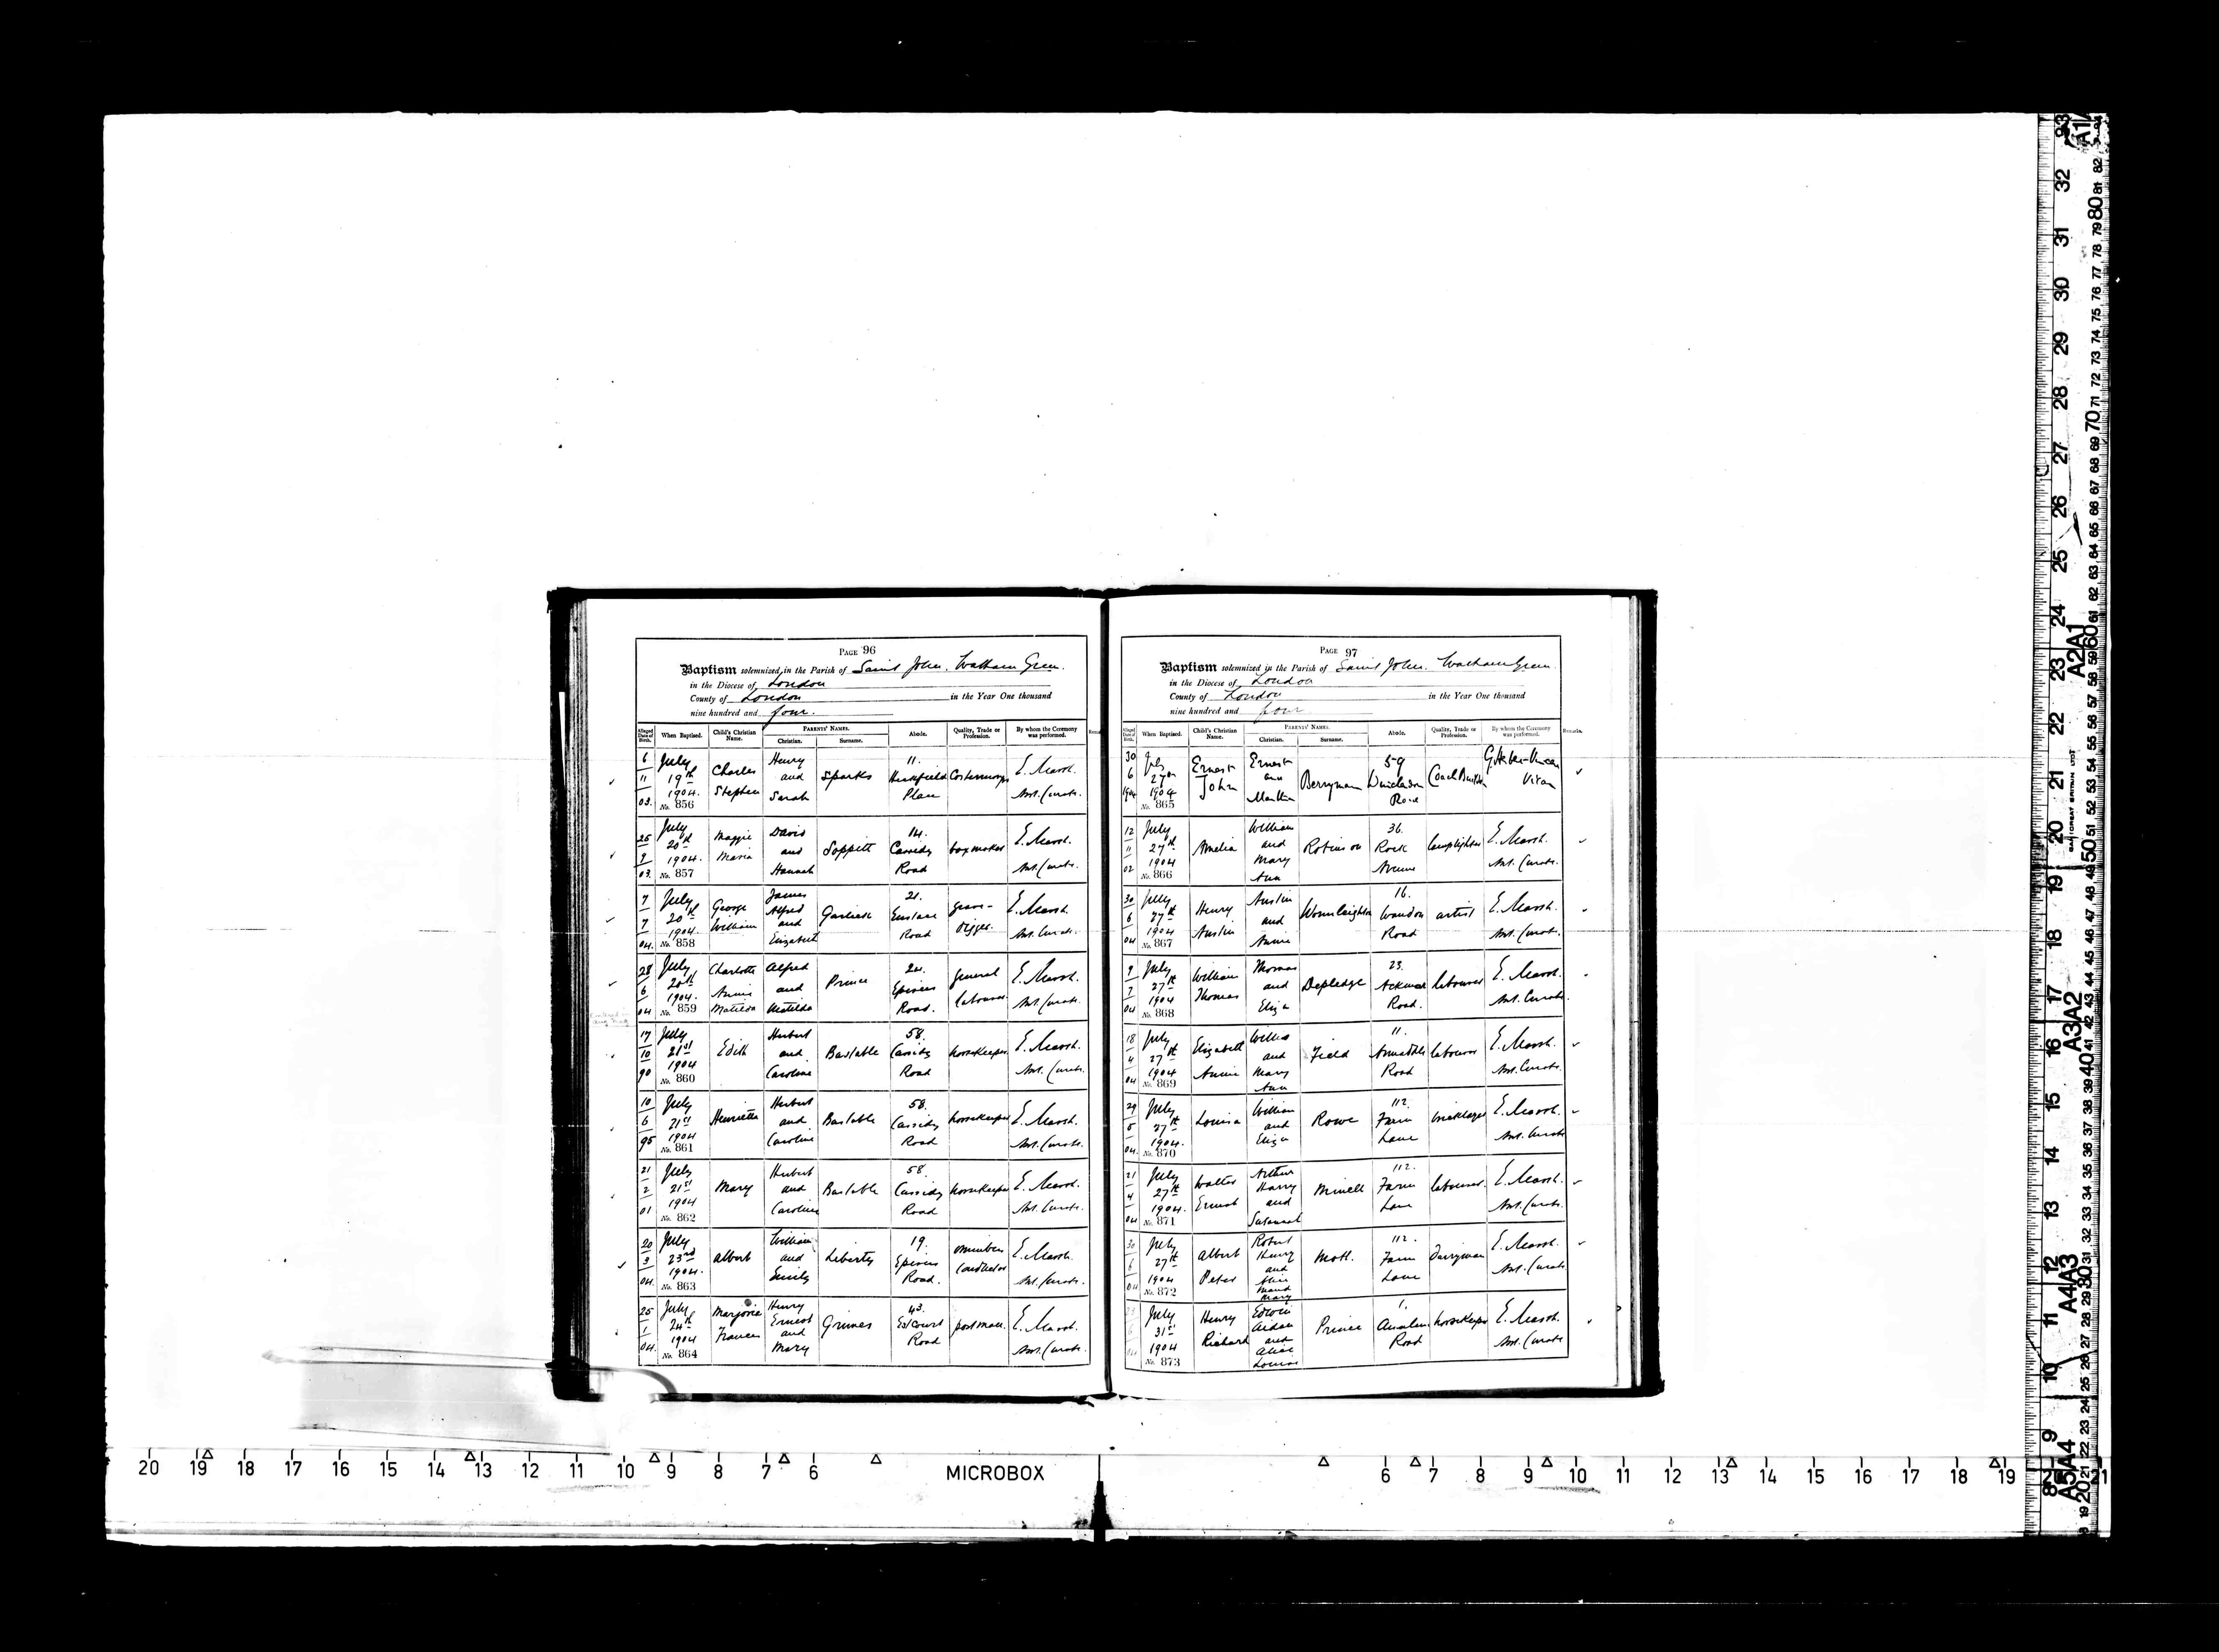 PAGE 96
Baptism solemnized in the Parish of Saint John. Walham Green.
in the Diocese of London
County of London in the Year One thousand
nine hundred and four.
Alleged Date of Birth. When Baptised. Child's Christian Name. PARENTS' NAMES. Christian. Surname. Abode. Quality, Trade or Profession. By whom the Ceremony was performed.
6 11 03. July 19th 1904. No. 856 Charles Stephen Henry and Sarah Sparks 11. Place Costermonger E. Marsh. Asst. Curate.
25 03. July 20th 1904. No. 857 Maggie Maria David and Hannah Soppitt 14. Cassidy Road box maker E. Marsh. Asst. Curate.
7 7 04. July 20th 1904. No. 858 George William James Alfred and Elizabeth 21. Eustace Road grave-digger E. Marsh. Asst. Curate.
28 6 04 July 20th 1904. No. 859 Charlotte Annie Matilda Alfred and Matilda Prince 24. Epirus Road. general labourer E. Marsh. Asst. Curate.
17 10 90 July 21st 1904 No. 860 Edith Herbert and Caroline Bastable 58. Cassidy Road horsekeeper E. Marsh. Asst. Curate.
10 6 95 July 21st 1904 No. 861 Henrietta Herbert and Caroline Bastable 58. Cassidy Road horsekeeper E. Marsh. Asst. Curate.
21 2 01 July 21st 1904 No. 862 Mary Herbert and Caroline Bastable 58. Cassidy Road horsekeeper E. Marsh. Asst. Curate.
20 3 04. July 23rd 1904. No. 863 Albert William and Emily Liberty 19. Epirus Road. omnibus conductor E. Marsh. Asst. Curate.
25 1 04. July 24th 1904 No. 864 Marjorie Frances Henry Ernest and Mary Grimes 43. Estcourt Road postman. E. Marsh. Asst. Curate.
PAGE 97
Baptism solemnized in the Parish of Saint John. Walham Green.
in the Diocese of London
County of London in the Year One thousand
nine hundred and four
Alleged Date of Birth. When Baptised. Child's Christian Name. PARENTS' NAMES. Christian. Surname. Abode. Quality, Trade or Profession. By whom the Ceremony was performed. Remarks.
30 6 1904 July 27th 1904 No. 865 Ernest John Ernest and Berryman 59 Road Coach Builder Vicar
12 11 02 July 27th 1904 No. 866 Amelia William and Mary Ann Robinson 36. Rock Avenue lamplighter E. Marsh. Asst. Curate.
30 6 04 July 27th 1904 No. 867 Henry Austin Austin and Annie Wormleighton 16. Wandon Road artist E. Marsh. Asst. Curate.
9 7 04 July 27th 1904 No. 868 William Thomas Thomas and Eliza Depledge 23. Road. labourer E. Marsh. Asst. Curate.
18 4 04 July 27th 1904 No. 869 Elizabeth Annie William and Mary Ann Field 11. Armadale Road labourer E. Marsh. Asst. Curate.
29 5 04. July 27th 1904. No. 870 Louisa William and Eliza Rowe 112. Farm Lane bricklayer E. Marsh. Asst. Curate
21 4 04 July 27th 1904. No. 871 Walter Ernest Arthur Harry and Susannah Minell 112. Farm Lane labourer. E. Marsh. Asst. Curate.
30 6 04 July 27th 1904 No. 872 Albert Peter Robert Henry and Alice Maud Mary Mott. 112. Farm Lane Dairyman E. Marsh. Asst. Curate
July 31st 1904 No. 873 Henry Richard Edwin Aidan and Alice Louisa Prince 1. Anselm Road horsekeeper E. Marsh. Asst. Curate
20 19 18 17 16 15 14 13 12 11 10 9 8 7 6 MICROBOX 6 7 8 9 10 11 12 13 14 15 16 17 18 19
A2A1
A3A2
A4A3
A5A4